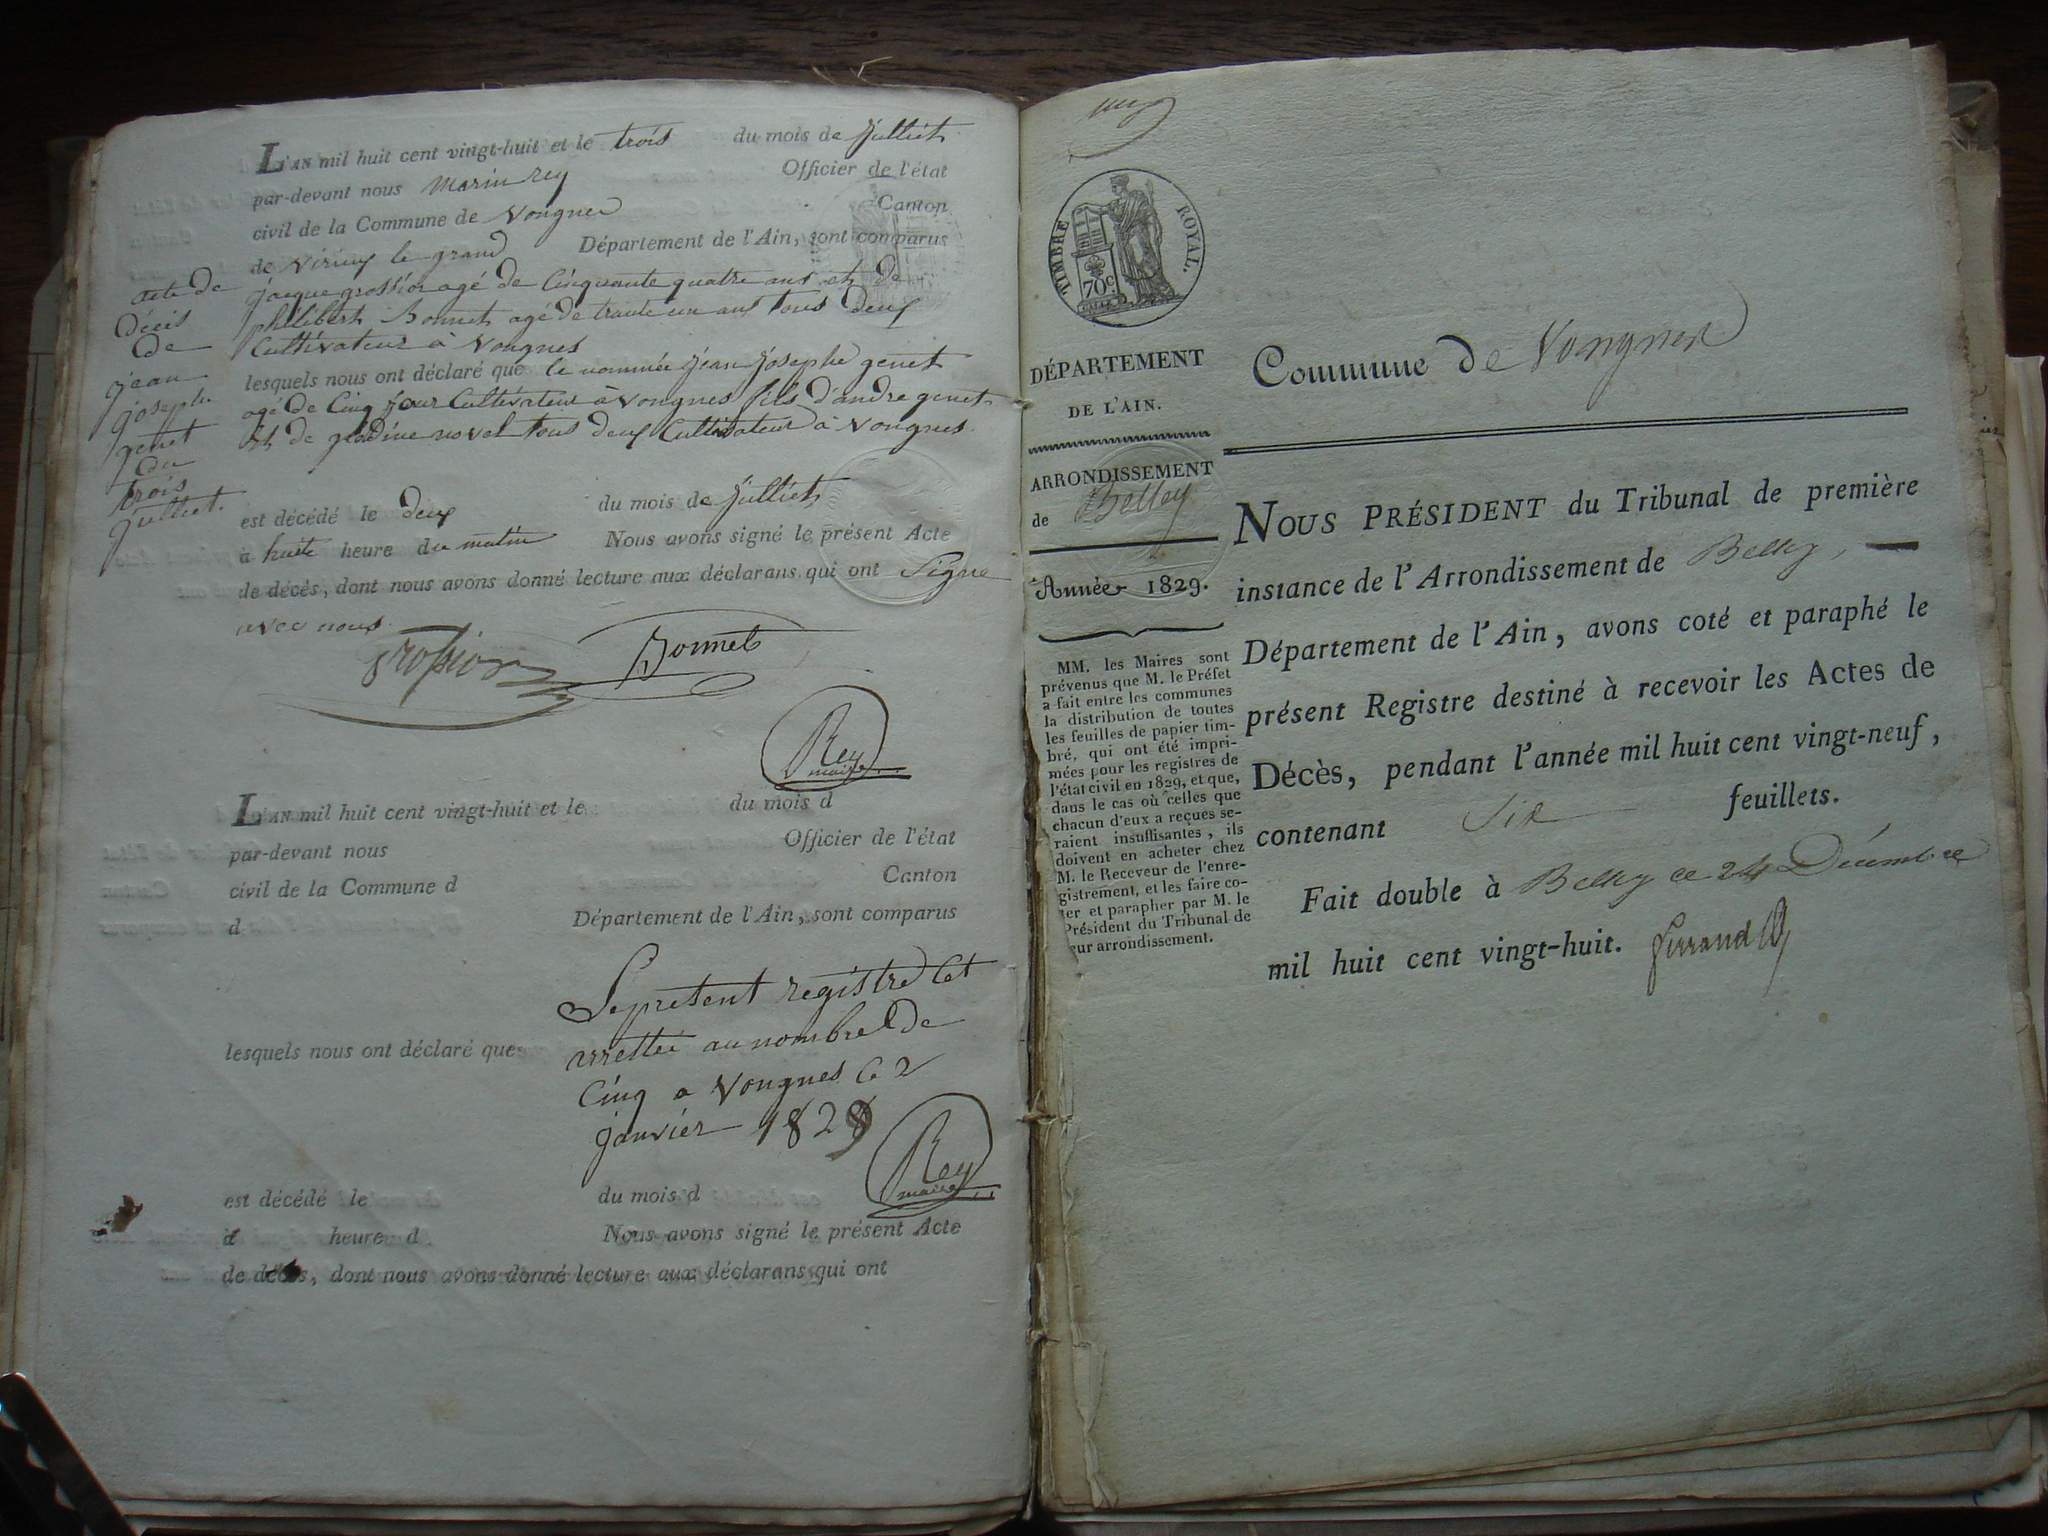 L'AN mil huit cent vingt-huit et le trois du mois de juilliet
par-devant nous Marin rey Officier de l'état
civil de la Commune de Vongnes Canton
de Virieux le grand Département de l'Ain, sont comparus
jacque grossior agé de Cinquante quatre ans et de
philibert Bonnet agé de trante un ans tous deux
Cultivateur à Vongnes
lesquels nous ont déclaré que le nommée jean josephe genet
agé de Cinq jour Cultivateur à Vongnes fils d'andre genet
et de glodine novel tous deux Cultivateur à Vongnes
est décédé le deux du mois de juilliet
à huite heure du matin Nous avons signé le présent Acte
de décès, dont nous avons donné lecture aux déclarans qui ont Signe
avec nous
acte de
décis
de
jean
josephe
genet
du
trois
juilliet.
grossior Bonnet
Rey
maire
L'AN mil huit cent vingt-huit et le du mois d
par-devant nous Officier de l'état
civil de la Commune d Canton
d Département de l'Ain, sont comparus
Le present registre Cet
lesquels nous ont déclaré que arrettée au nombre de
Cinq a Vongnes Ce 2
janvier 1829
Rey
maire
est décédé le du mois d
à heure d Nous avons signé le présent Acte
de décès, dont nous avons donné lecture aux déclarans qui ont
TIMBRE ROYAL.
70c.
DÉPARTEMENT
DE L'AIN.
ARRONDISSEMENT
de Belley
Année 1829.
MM. les Maires sont
prévenus que M. le Préfet
a fait entre les communes
la distribution de toutes
les feuilles de papier tim-
bré, qui ont été impri-
mées pour les registres de
l'état civil en 1829, et que,
dans le cas où celles que
chacun d'eux a reçues se-
raient insuffisantes, ils
doivent en acheter chez
M. le Receveur de l'enre-
gistrement, et les faire co-
ter et parapher par M. le
Président du Tribunal de
eur arrondissement.
Commune de Vongnes
NOUS PRÉSIDENT du Tribunal de première
instance de l'Arrondissement de Belley,
Département de l'Ain, avons coté et paraphé le
présent Registre destiné à recevoir les Actes de
Décès, pendant l'année mil huit cent vingt-neuf,
contenant Six feuillets.
Fait double à Belley ce 24 Décembre
mil huit cent vingt-huit.